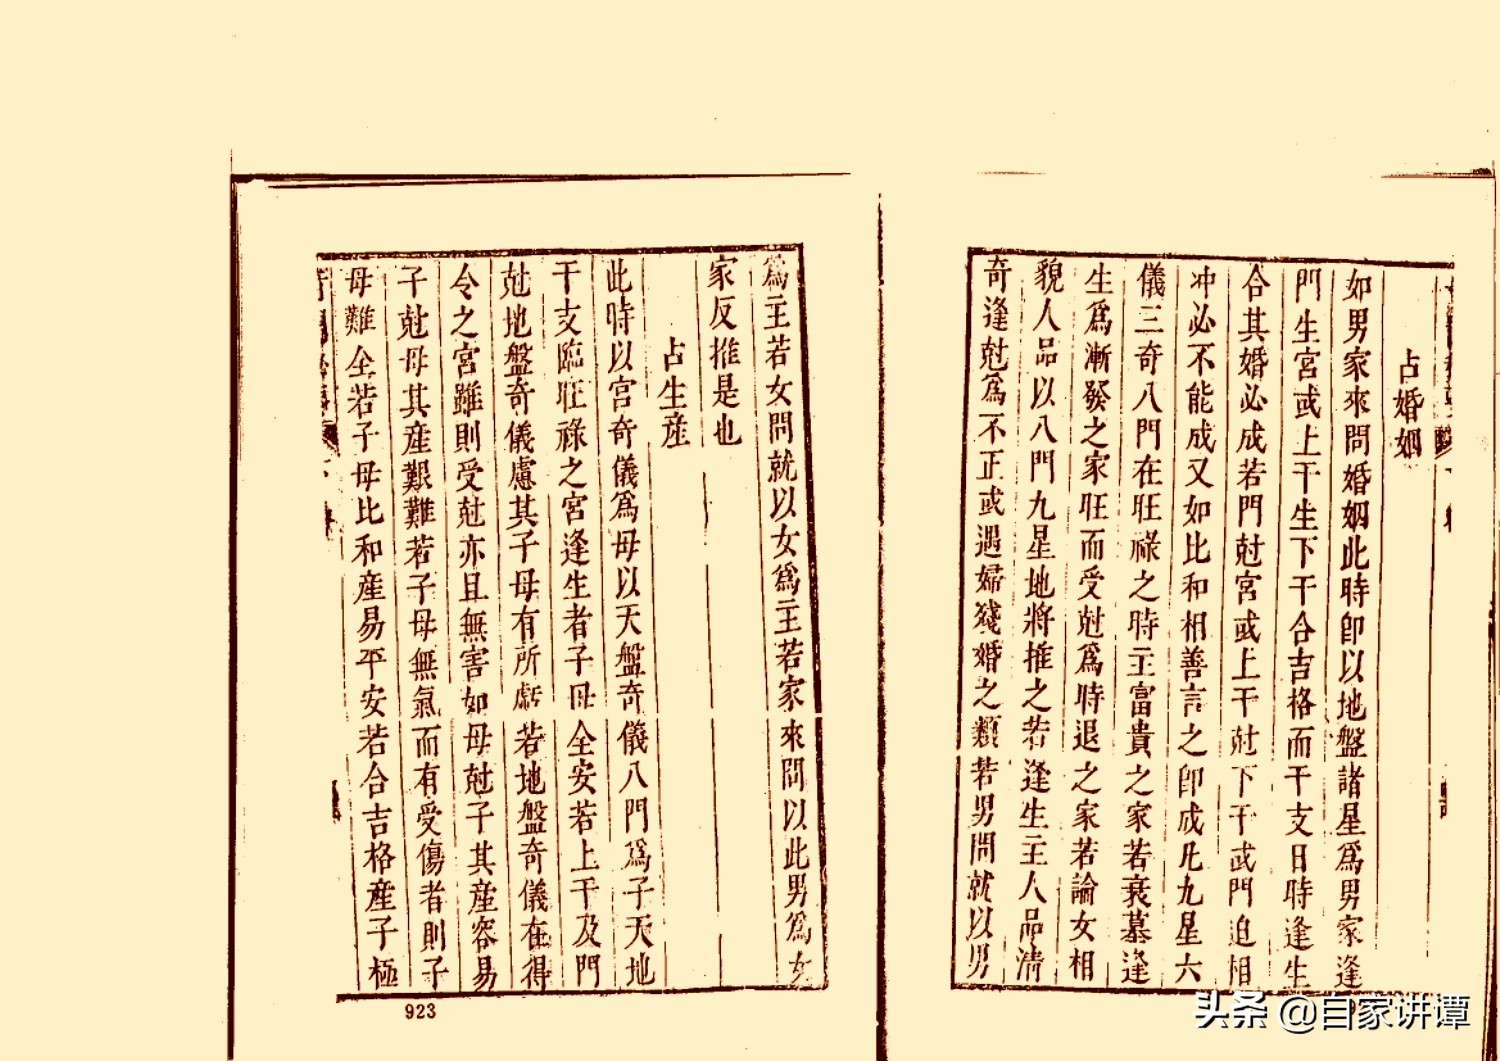 占婚姻
如男家來問婚姻此時卽以地盤諸星爲男家逢
門生宮或上干生下干合吉格而干支日時逢生
合其婚必成若門尅宮或上干尅下干或門迫相
冲必不能成又如比和相善言之卽成凡九星六
儀三奇八門在旺祿之時主富貴之家若衰墓逢
生爲漸發之家旺而受尅爲時退之家若論女相
貌人品以八門九星地將推之若逢生主人品清
奇逢尅爲不正或遇婦殘婚之類若男問就以男
爲主若女問就以女爲主若家來問以此男爲女
家反推是也
占生産
此時以宮奇儀爲母以天盤奇儀八門爲子天地
干支臨旺祿之宮逢生者子母全安若上干及門
尅地盤奇儀慮其子母有所虧若地盤奇儀在得
令之宮雖則受尅亦且無害如母尅子其産容易
子尅母其産艱難若子母無氣而有受傷者則子
母難全若子母比和産易平安若合吉格産子極
923
头条 @自家讲谭